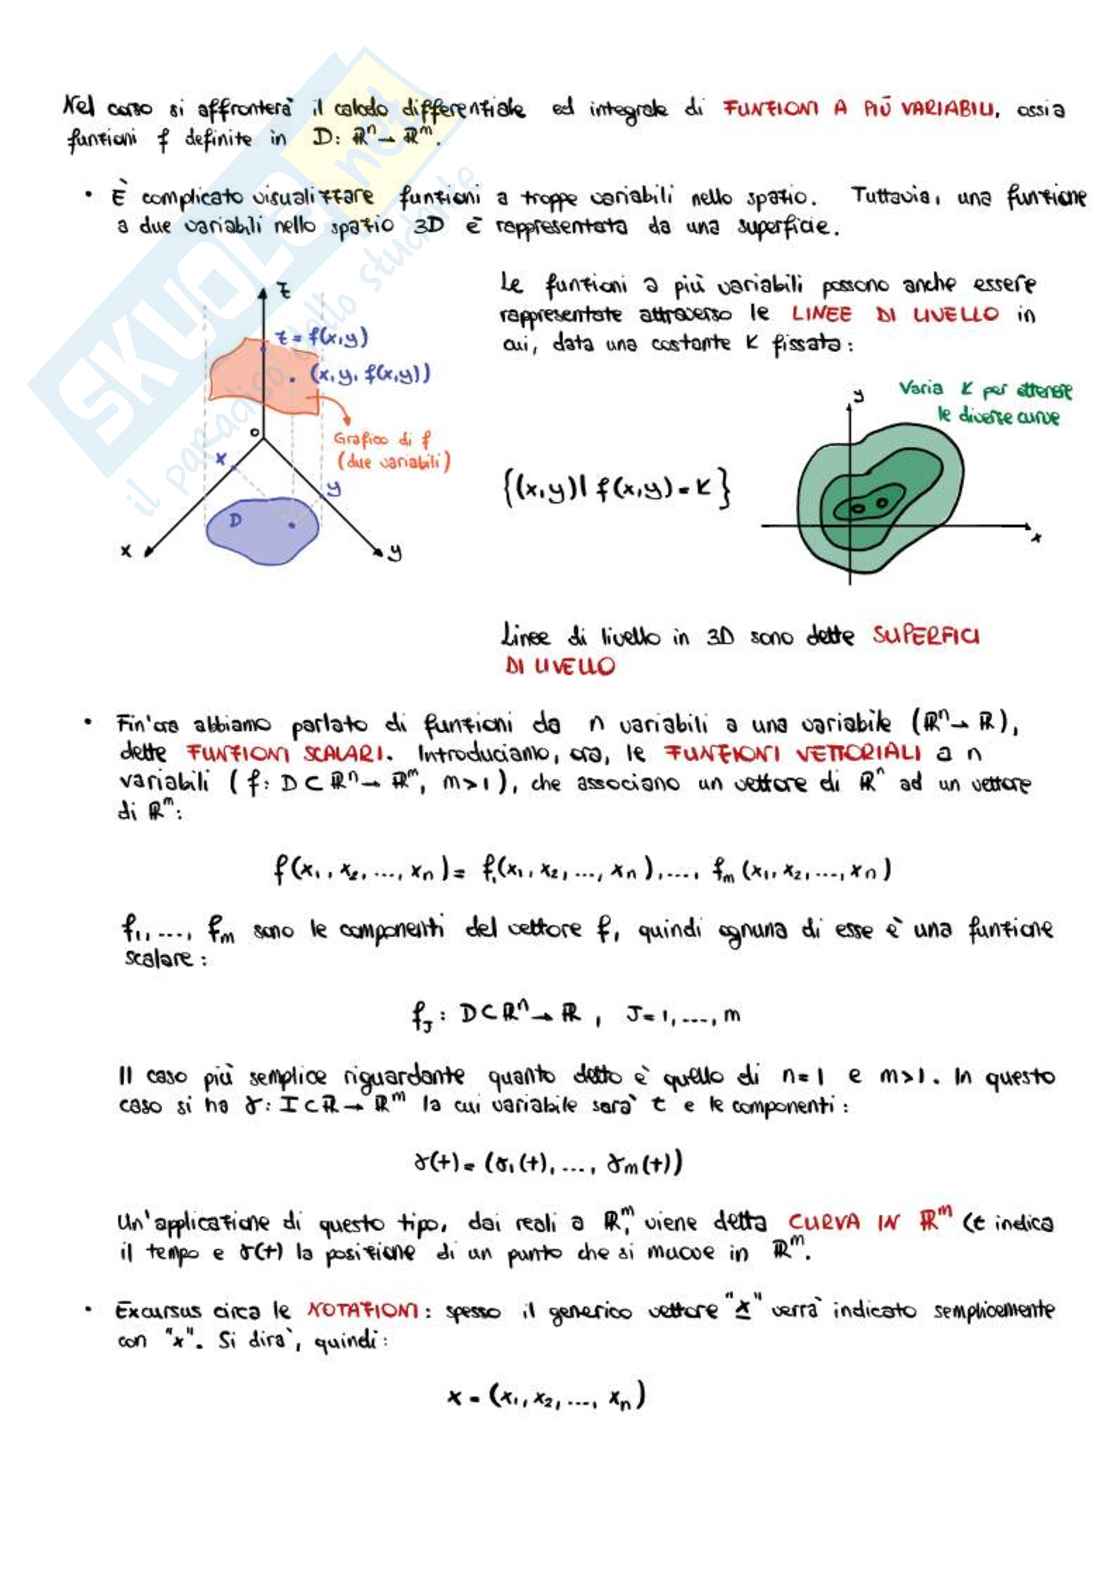 SKUOLA.net
il paradiso dello studente
Nel corso si affronterà il calcolo differenziale ed integrale di FUNZIONI A PIÙ VARIABILI, ossia
funzioni f definite in D: ℝⁿ → ℝᵐ.
• È complicato visualizzare funzioni a troppe variabili nello spazio. Tuttavia, una funzione
a due variabili nello spazio 3D è rappresentata da una superficie.
z
z = f(x,y)
(x, y, f(x,y))
Grafico di f
(due variabili)
O
x
y
D
x
y
Le funzioni a più variabili possono anche essere
rappresentate attraverso le LINEE DI LIVELLO in
cui, data una costante K fissata:
{(x,y) | f(x,y) = K}
Varia K per ottenere
le diverse curve
y
x
Linee di livello in 3D sono dette SUPERFICI
DI LIVELLO
• Fin'ora abbiamo parlato di funzioni da n variabili a una variabile (ℝⁿ → ℝ),
dette FUNZIONI SCALARI. Introduciamo, ora, le FUNZIONI VETTORIALI a n
variabili (f: D ⊂ ℝⁿ → ℝᵐ, m>1), che associano un vettore di ℝⁿ ad un vettore
di ℝᵐ:
f(x₁, x₂, ..., xₙ) = f₁(x₁, x₂, ..., xₙ), ..., fₘ(x₁, x₂, ..., xₙ)
f₁, ..., fₘ sono le componenti del vettore f, quindi ognuna di esse è una funzione
scalare:
f_J : D ⊂ ℝⁿ → ℝ , J = 1, ..., m
Il caso più semplice riguardante quanto detto è quello di n=1 e m>1. In questo
caso si ha γ: I ⊂ ℝ → ℝᵐ la cui variabile sarà t e le componenti:
γ(t) = (γ₁(t), ..., γₘ(t))
Un'applicazione di questo tipo, dai reali a ℝᵐ, viene detta CURVA IN ℝᵐ (t indica
il tempo e γ(t) la posizione di un punto che si muove in ℝᵐ.
• Excursus circa le NOTAZIONI: spesso il generico vettore "x̲" verrà indicato semplicemente
con "x". Si dirà, quindi:
x = (x₁, x₂, ..., xₙ)